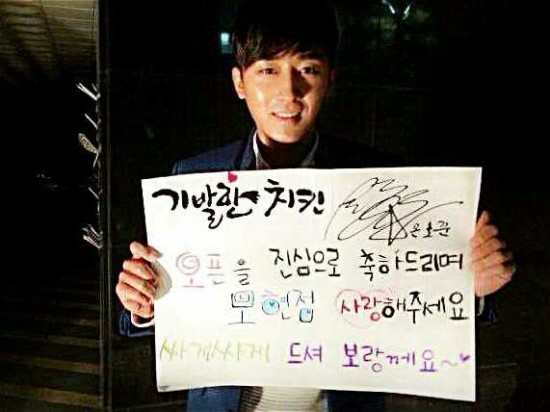 기발한 치킨
손호준
오픈을 진심으로 축하드리며
모현점 사랑해주세요
싸게싸게 드셔 보랑께요~